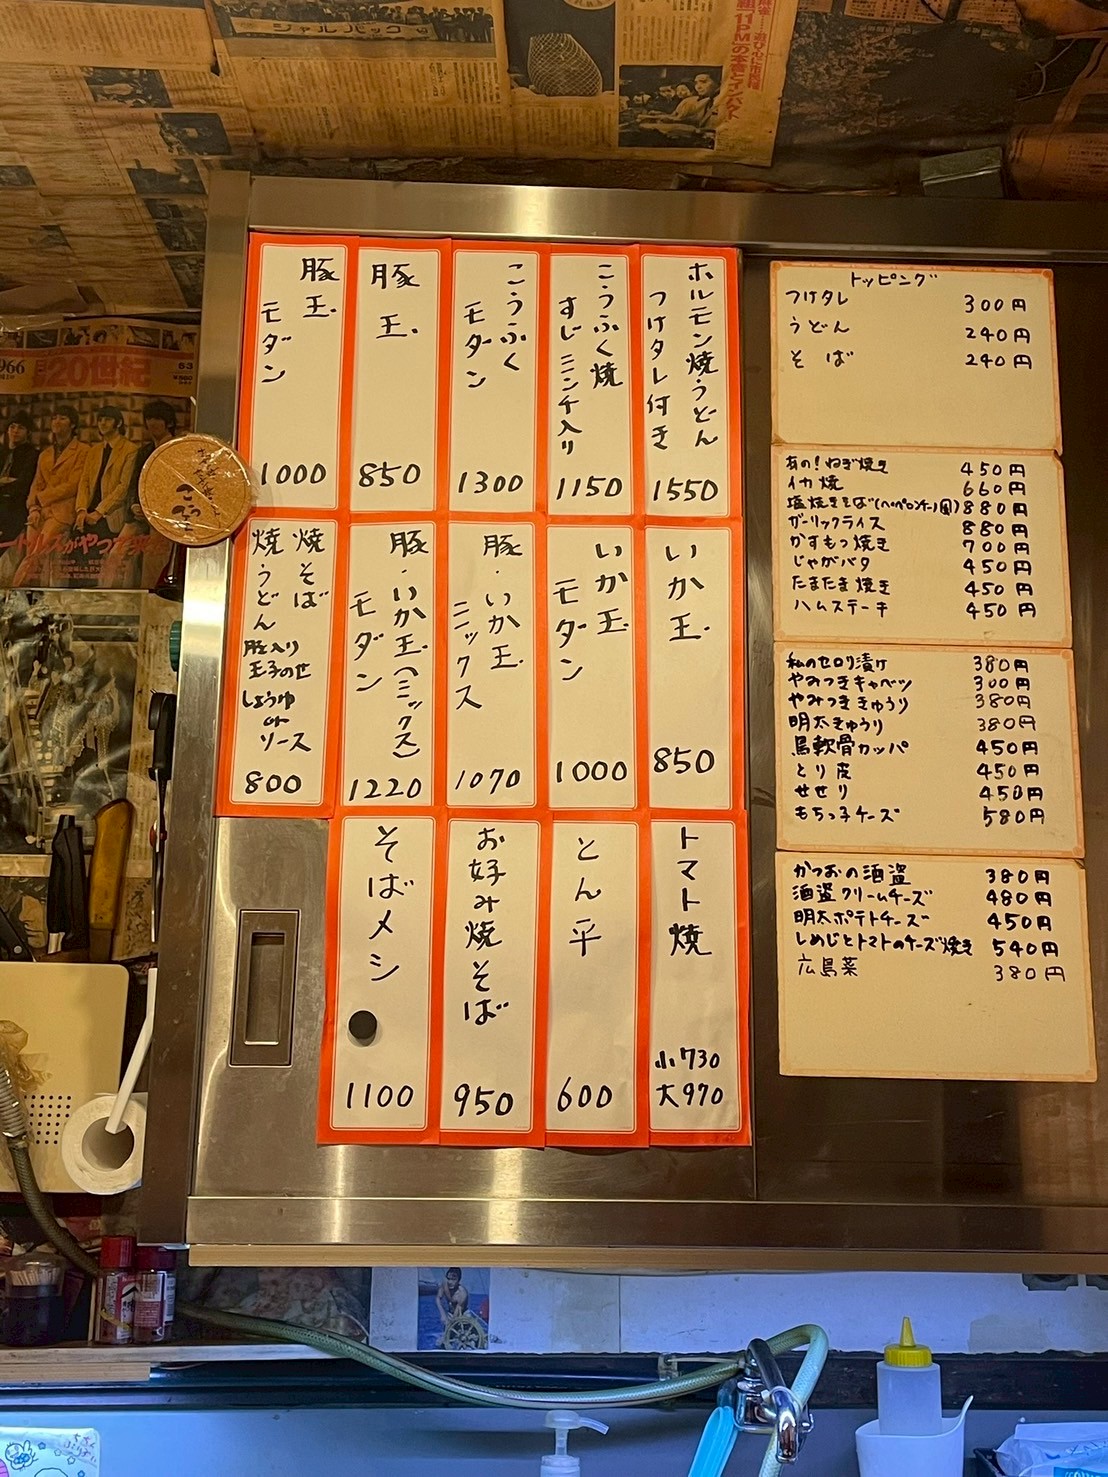 ジャルパック
11PMの本音とインパクト
ホルモン焼うどん
つけタレ付き
1550
こうふく焼
すじニンチ入り
1150
こうふく
モダン
1300
豚玉
850
豚玉
モダン
1000
いか玉
850
いか玉
モダン
1000
豚・いか玉
ミックス
1070
豚・いか玉(ミックス)
モダン
1220
焼そば
焼うどん
豚入り
玉子のせ
しょうゆ
or
ソース
800
トマト焼
小730
大970
とん平
600
お好み焼そば
950
そばメシ
1100
トッピング
つけタレ 300円
うどん 240円
そば 240円
あの!ねぎ焼き 450円
イカ焼 660円
塩焼きそば(ペペロンチーノ風) 880円
ガーリックライス 880円
かすもつ焼き 700円
じゃがバタ 450円
たまたま焼き 450円
ハムステーキ 450円
私のセロリ漬け 380円
やみつきキャベツ 300円
やみつききゅうり 380円
明太きゅうり 380円
馬軟骨カッパ 450円
とり皮 450円
せせり 450円
もちっ子チーズ 580円
かつおの酒盗 380円
酒盗クリームチーズ 480円
明太ポテトチーズ 450円
しめじとトマトのチーズ焼き 540円
広島菜 380円
966
20世紀